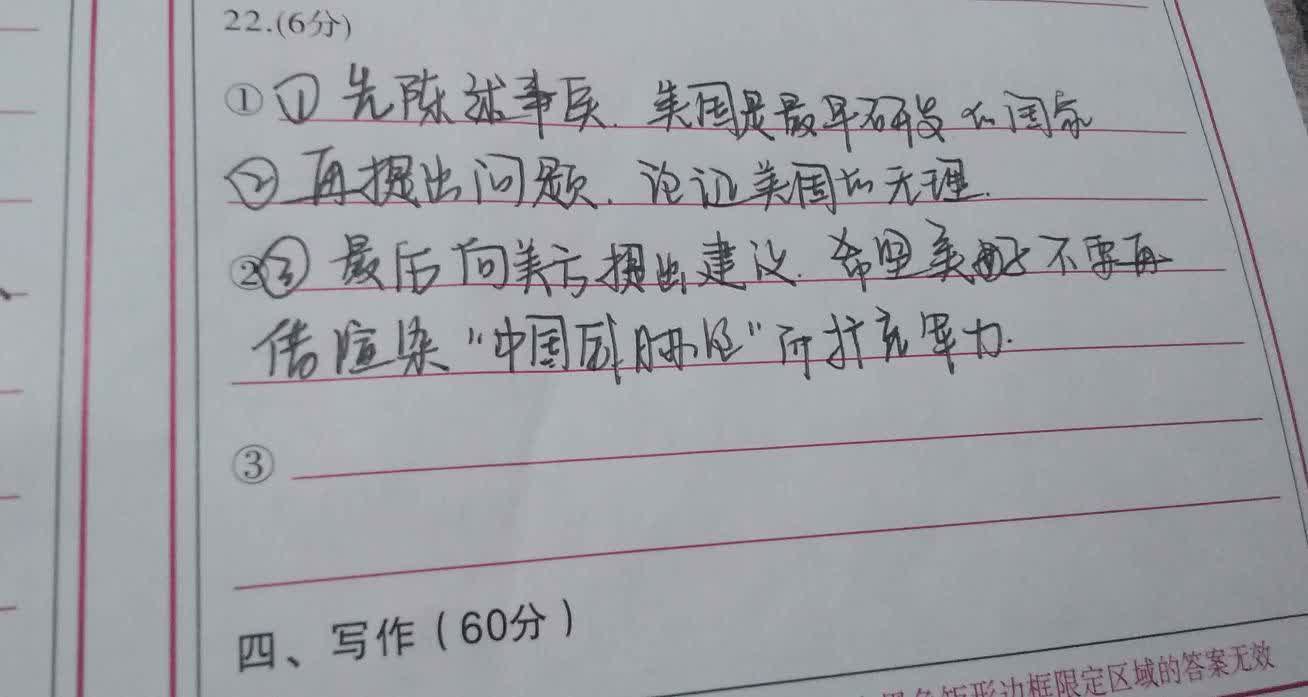 22.(6分)
①① 先陈述事实.美国是最早研发的国家
② 再提出问题.论证美国的无理.
②③ 最后向美方提出建议.希望美 不要再
借渲染“中国威胁论”而扩充军力.
③
四、写作(60分)
边框限定区域的答案无效